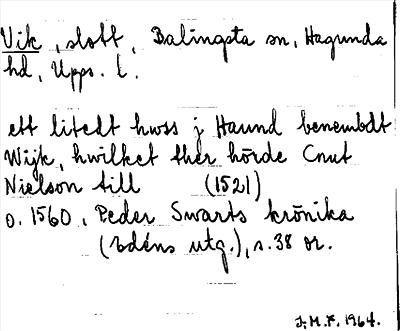 Vik, slott, Balingsta sn, Hagunda
hd, Upps. l.
ett litedt hwss j Haund benembdt
Wijk, hwilket ther hörde Cnut
Nielson till (1521)
o. 1560, Peder Swarts krönika
(Edéns utg.), s. 38 or.
J.M.F. 1964.